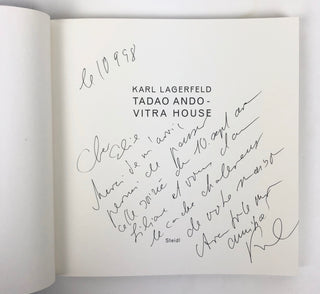 le 10 9 98
KARL LAGERFELD
TADAO ANDO-
VITRA HOUSE
Cher Elie
Merci de m'avoir
permis de passer
cette soirée du 10 sept avec
Liliane et vous dans
le cadre chaleureux
de votre maison
Avec toute mon
amitié
Steidl